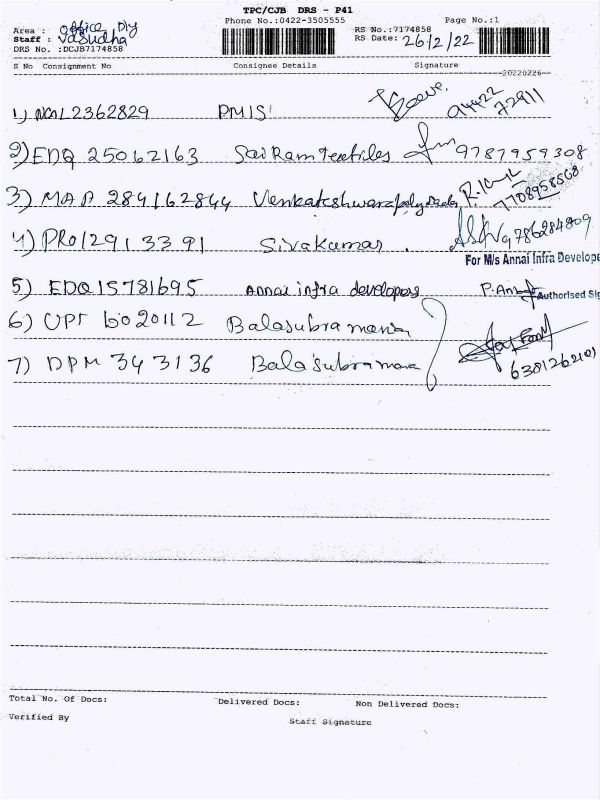 TPC/CJB DRS - P41
Phone No.:0422-3505555 Page No.:1
Area : Office Dly
RS No.:7174858
Staff : Vasudha
RS Date: 26/2/22
DRS No. :DCJB7174858
S No Consignment No Consignee Details Signature
20220226
1) 2362829 PMIS 94422 72911
2) EDQ 25062163 Sai Ram Textiles 9787959308
3) MAA 284162844 Venkateshwara 7708958568
4) PRO 129133 91 Sivakumar . 9786284809
For M/s Annai Infra Develope
5) EDQ 15781695 Annai infra developers Authorised Sig
6) 6020112 Balasubramania
7) DPM 343136 Balasubramania 6381262101
Total No. Of Docs: Delivered Docs: Non Delivered Docs:
Verified By Staff Signature